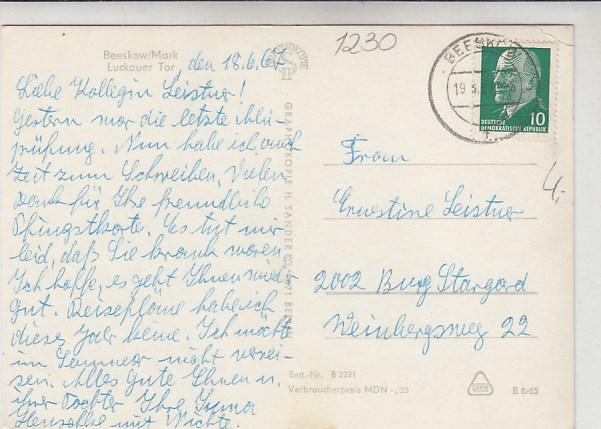 1230
Beeskow/Mark
Luckauer Tor, den 18.6.67
Liebe Kollegin Leistner!
Gestern war die letzte Abi-
prüfung. Nun habe ich auch
Zeit zum Schreiben. Vielen
Dank für Ihre freundliche
Pfingstkarte. Es tut mir
leid, daß Sie krank waren.
Ich hoffe, es geht Ihnen wieder
gut. Reisepläne habe ich
dieses Jahr keine. Ich möchte
im Sommer nicht verrei-
sen. Alles Gute Ihnen u.
ihrer Tochter Ihre Irma
mit Wichte.
GRAPHOKOPIE H. SANDER KG,
BEESKOW
DEUTSCHE
DEMOKRATISCHE REPUBLIK
10
Frau
Ernestine Leistner
2002 Burg Stargard
Weinbergsweg 22
4,-
Best.-Nr. B 2221
Verbraucherpreis MDN -,23
B 8/65